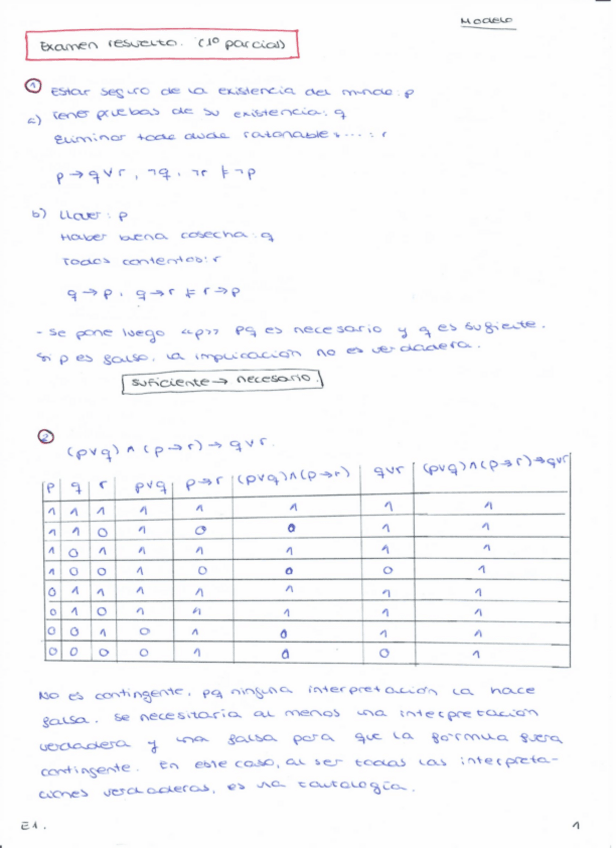 Modelo
Examen resuelto. (1º parcial)
① Estar seguro de la existencia del mundo: p
a) Tener pruebas de su existencia: q
Eliminar toda duda razonable....: r
p → q ∨ r, ¬q, ¬r ⊨ ¬p
b) Llover: p
Haber buena cosecha: q
Todos contentos: r
q → p, q → r ⊭ r → p
- Se pone luego «p» pq es necesario y q es sufiente.
Si p es falso, la implicación no es verdadera.
Suficiente → necesario.
② (p∨q) ∧ (p→r) → q∨r.
p q r p∨q p→r (p∨q)∧(p→r) q∨r (p∨q)∧(p→r)→q∨r
1 1 1 1 1 1 1 1
1 1 0 1 0 0 1 1
1 0 1 1 1 1 1 1
1 0 0 1 0 0 0 1
0 1 1 1 1 1 1 1
0 1 0 1 1 1 1 1
0 0 1 0 1 0 1 1
0 0 0 0 1 0 0 1
No es contingente, pq ninguna interpretación la hace
falsa. Se necesitaria al menos una interpretación
verdadera y una falsa para que la fórmula fuera
contingente. En este caso, al ser todas las interpreta-
ciones verdaderas, es una tautología.
E1. 1